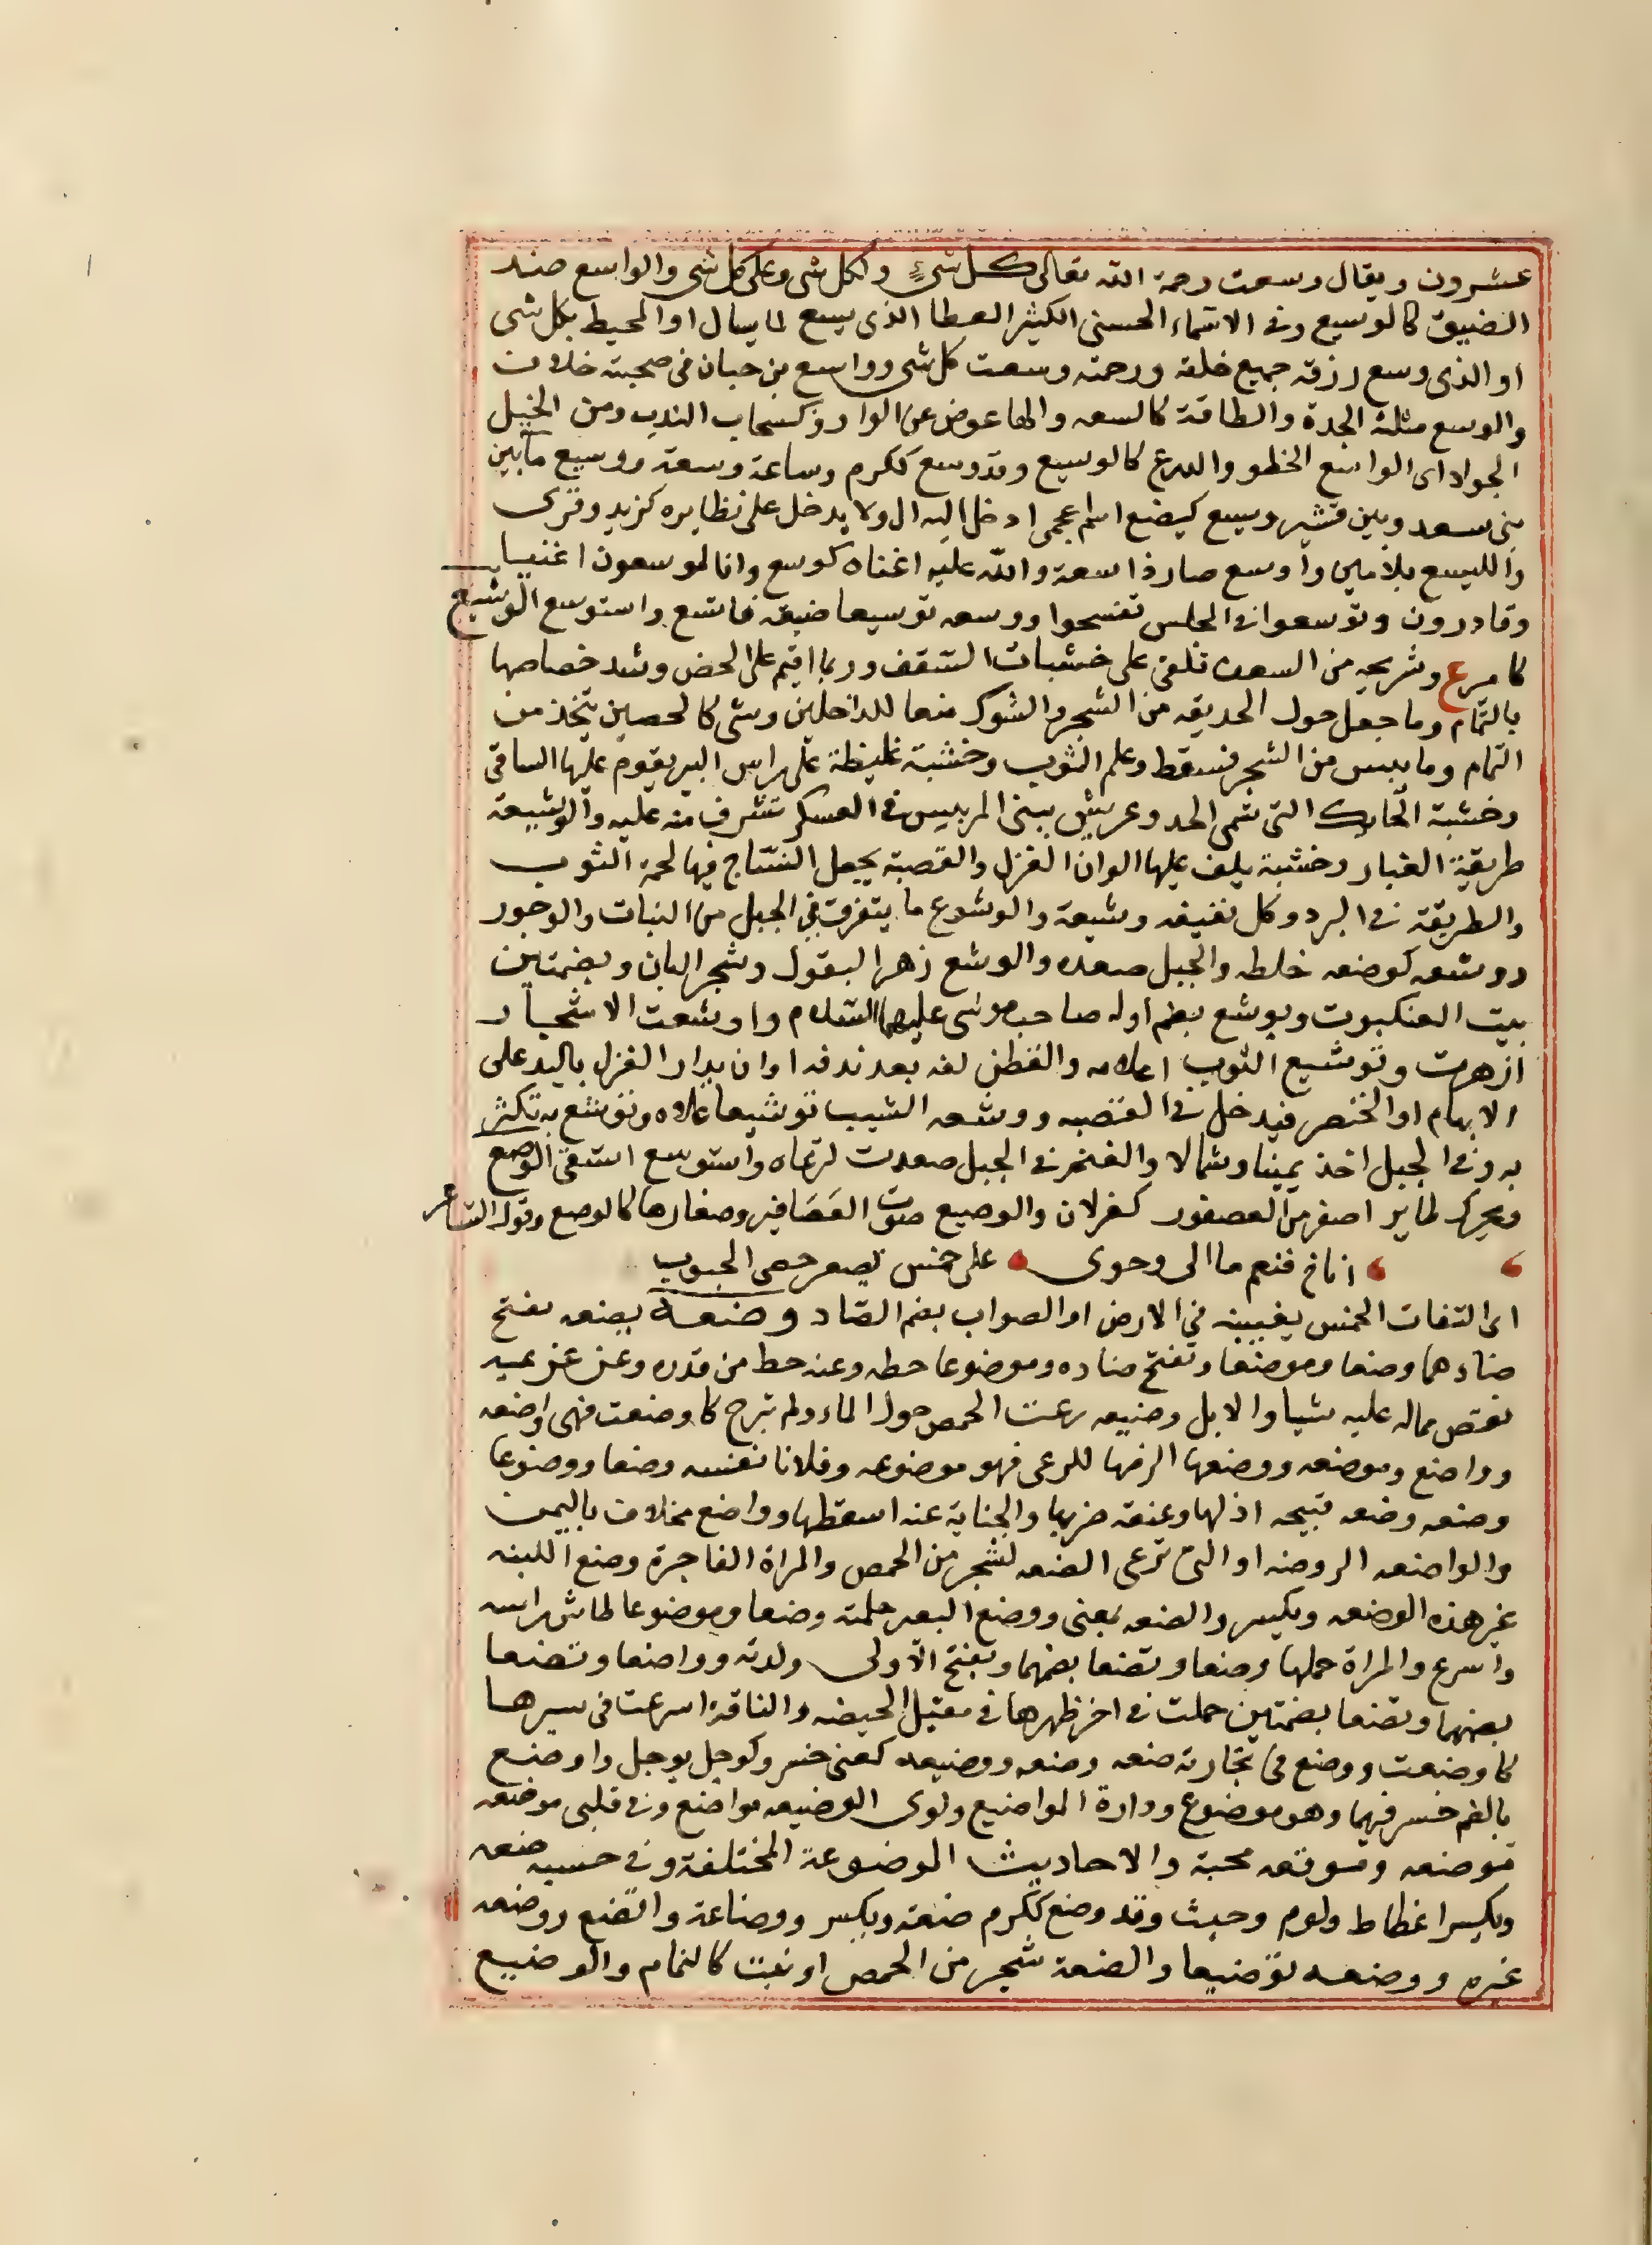 عشرون ويقال وسعت رحمة الله تعالى كل شيء ولكل شى وعلى كل شى والواسع ضد
الضيق كالوسيع وفى الاسماء الحسنى الكثير العطا الذى يسع لما يسال او المحيط بكل شى
او الذى وسع رزقه جميع خلقه ورحمته وسعت كل شى وواسع بن حبان فى صحبته خلاف
والوسع مثلثة الجدة والطاقة كالسعه والها عوض عن الواو وكسحاب الندب ومن الخيل
الجواد اى الواسع الخطو والذرع كالوسيع وقد وسع ككرم وساعة وسعة ووسيع ما بين
بنى سعد وبين قشير ويسع كيضع اسم عجمى ادخل اليه ال ولا يدخل على نظايره كزيد وقرى
والليسع بلامين واوسع صار ذا سعة والله عليه اغناه كوسع وانا لموسعون اغنيا
وقادرون وتوسعوا فى المجلس تفسحوا ووسعه توسيعا ضيقه فاتسع واستوسع الوشيع
كامير وشريجه من السعف تلقى على خشبات السقف وربما اقيم على الخص وشد خصاصها
بالثمام وما جعل حول الحديقه من الشجر والشوك منعا للداخلين وشى كالحصير يتخذ من
الثمام وما يبس من الشجر فسقط وعلم الثوب وخشبة غليظة على راس البير يقوم عليها الساقى
وخشبة الحايك التى تسمى الحد وعريش يبنى للرييس فى العسكر تشرف منه عليه والوشيعة
طريقة الغبار وخشبة يلف عليها الوان الغزل والقصبة يجعل النساج فيها لحمة الثوب
والطريقة فى البرد وكل لفيفه وشيعة والوشوع ما يتفرق فى الجبل من النبات والوجور
ووشعه كوضعه خلطه والجبل صعده والوشع زهر البقول وشجر البان وبضمتين
بيت العنكبوت ويوشع بضم اوله صاحب موسى عليهما السلام واوشعت الاشجار
ازهرت وتوشيع الثوب اعلامه والقطن لفه بعد ندفه او ان يدار الغزل باليد على
الابهام او الخنصر فيدخل فى القصبه ووشعه الشيب توشيعا علاه وتوشع به تكثر
به وفى الجبل اخذ يمينا وشمالا والغنم فى الجبل صعدت لترعاه واستوشع استقى الوصع
ويحرك طاير اصغر من العصفور كغزلان والوصيع صوت العصافير وصغارها كالوصع وقول الشاعر
اناخ فنعم ما الى وحوى على خمس يصعر حصى الجبوب
اى الثفنات الخمس يغيبنه فى الارض او الصواب بضم الصاد وضعه يضعه بفتح
ضادهما وضعا وموضعا وتفتح ضاده وموضوعا حطه وعنه حط من قدره وعن غريمه
نقص مماله عليه شيا والابل وضيعه رعت الحمض حول الماء ولم تبرح كاوضعت فهى واضعه
وواضع وموضعه ووضعها الزمها المرعى فهو موضوعه وفلانا نفسه وضعا ووضوعا
وضعه وضعه قبيحه اذلها وعنقه ضربها والجناية عنه اسقطها وواضع مخلاف باليمن
والواضعه الروضه او التى ترعى الضعه لشجر من الحمض والمراة الفاجرة وضع اللبنه
غير هذه الوضعه ويكسر والضعه بمعنى ووضع البعير حكمته وضعا وموضوعا طاش راسه
واسرع والمراة حملها وضعا وتضعا بضمهما وتفتح الاولى ولدته ووضعا وتضعا
بضمها وتضعا بضمتين حملت فى اخر طهرها فى مقبل الحيضه والناقة اسرعت فى سيرها
كاوضعت ووضع فى تجارته ضعه وضعه ووضيعه كعنى خسر وكوجل يوجل واوضع
بالضم خسر فيها وهو موضوع ودارة المواضيع ولوى الوضيعه مواضع وفى قلبى موضعه
موضعه وموقعه محبة والاحاديث الموضوعة المختلقة وفى حسبه ضعه
ويكسر انحطاط ولوم وخبث وقد وضع ككرم ضعة ويكسر ووضاعة واتضع ووضعه
غيره ووضعه توضيعا والضعة شجر من الحمض او نبت كالثمام والوضيع